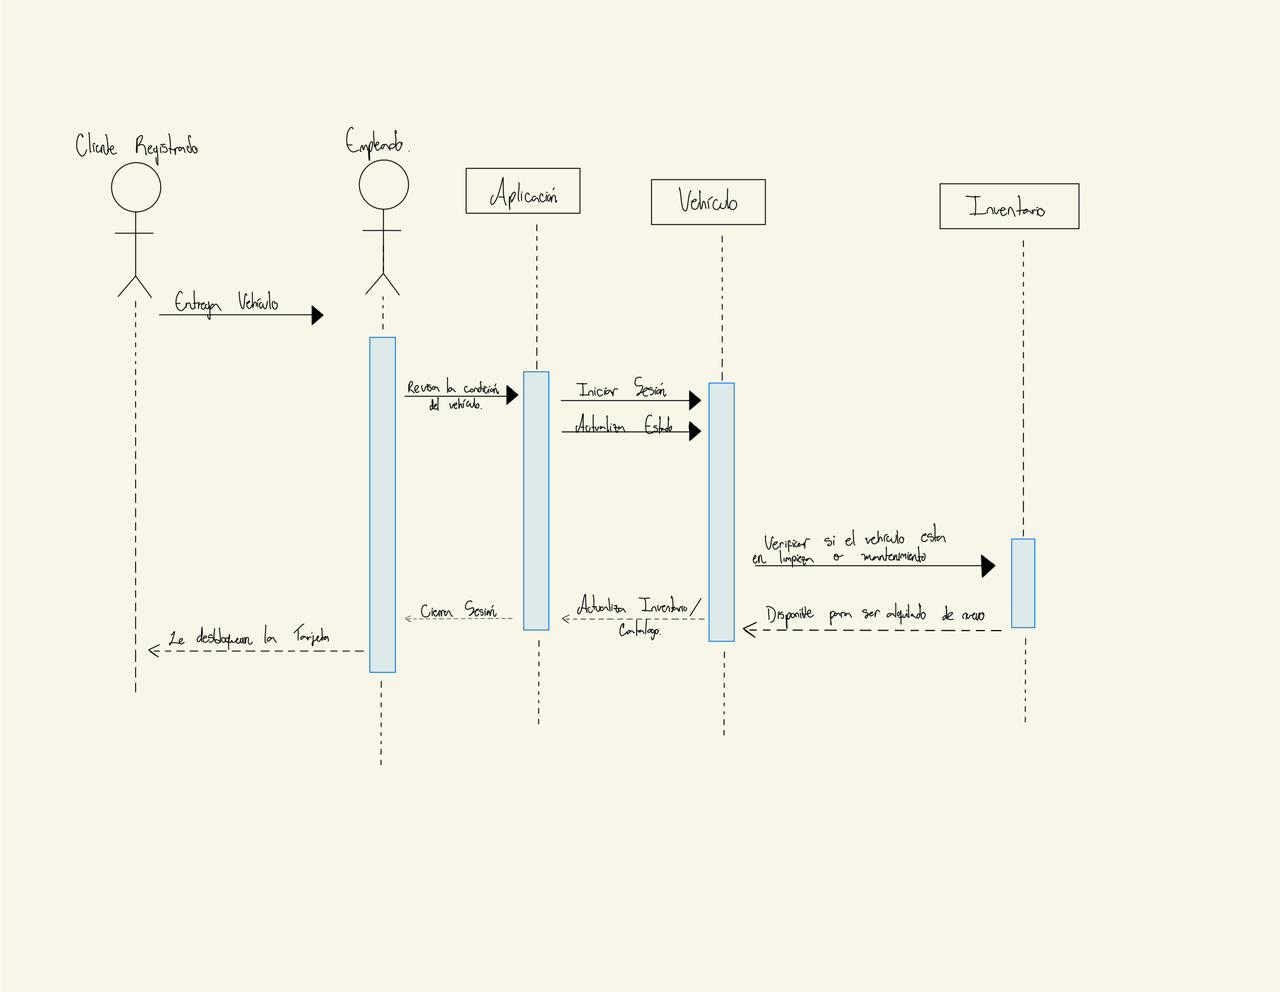 Cliente Registrado
Empleado.
Aplicación
Vehículo
Inventario
Entrega Vehículo
Revisa la condición
del vehículo.
Iniciar Sesión
Actualiza Estado
Verificar si el vehículo esta
en limpieza o mantenimiento
Disponible para ser alquilado de nuevo
Actualiza Inventario/
Catálogo.
Cierra Sesión
Le desbloquean la Tarjeta